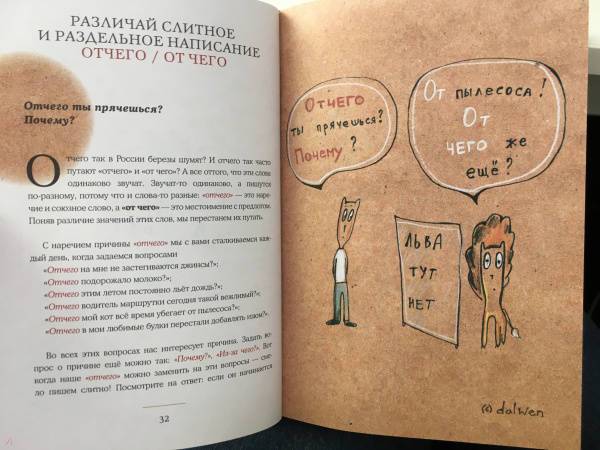 РАЗЛИЧАЙ СЛИТНОЕ
И РАЗДЕЛЬНОЕ НАПИСАНИЕ
ОТЧЕГО / ОТ ЧЕГО
Отчего ты прячешься?
Почему?
Отчего так в России березы шумят? И отчего так часто
путают «отчего» и «от чего»? А все оттого, что эти слова
одинаково звучат. Звучат-то одинаково, а пишутся
по-разному, потому что и слова-то разные: «отчего» — это наре-
чие и союзное слово, а «от чего» — это местоимение с предлогом.
Поняв различие значений этих слов, мы перестанем их путать.
С наречием причины «отчего» мы с вами сталкиваемся каж-
дый день, когда задаемся вопросами
«Отчего на мне не застегиваются джинсы?»;
«Отчего подорожало молоко?»;
«Отчего этим летом постоянно льёт дождь?»;
«Отчего водитель маршрутки сегодня такой вежливый?»;
«Отчего мой кот всё время убегает от пылесоса?»;
«Отчего в мои любимые булки перестали добавлять изюм?».
Во всех этих вопросах нас интересует причина. Задать во-
прос о причине ещё можно так: «Почему?», «Из-за чего?». Вот
когда наше «отчего» можно заменить на эти вопросы — сме-
ло пишем слитно! Посмотрите на ответ: если он начинается
32
Отчего
ты прячешься?
Почему?
От пылесоса!
От
чего же
ещё?
ЛЬВА
ТУТ
НЕТ
(c) dalwen